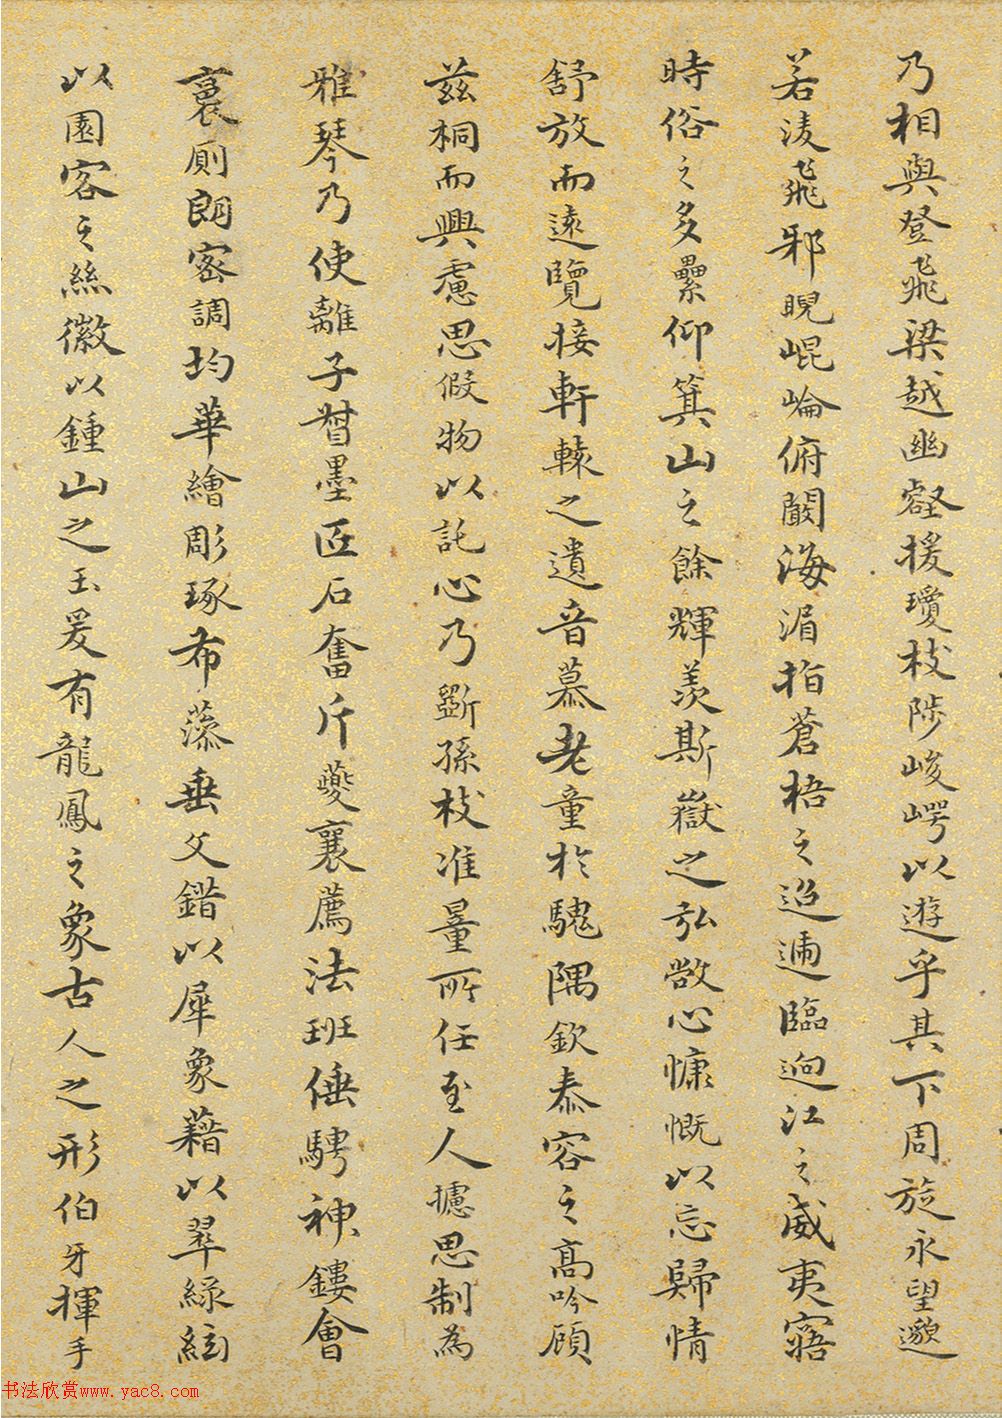 乃相與登飛梁越幽壑援瓊枝陟峻崿以遊乎其下周旋永望邈
若淩飛邪睨崐崘俯闞海湄指蒼梧之迢逓臨迥江之威夷寤
時俗之多累仰箕山之餘輝羨斯嶽之弘敞心慷慨以忘歸情
舒放而遠覽接軒轅之遺音慕老童於騩隅欽泰容之高吟顧
茲桐而興慮思假物以託心乃斵孫枝准量所任至人攄思制為
雅琴乃使離子督墨匠石奮斤夔襄薦法班倕騁神鏤會
裛厠朗密調均華繪彫琢布藻垂文錯以犀象藉以翠綠絃
以園客之絲徽以鍾山之玉爰有龍鳳之象古人之形伯牙揮手
书法欣赏www.yac8.com